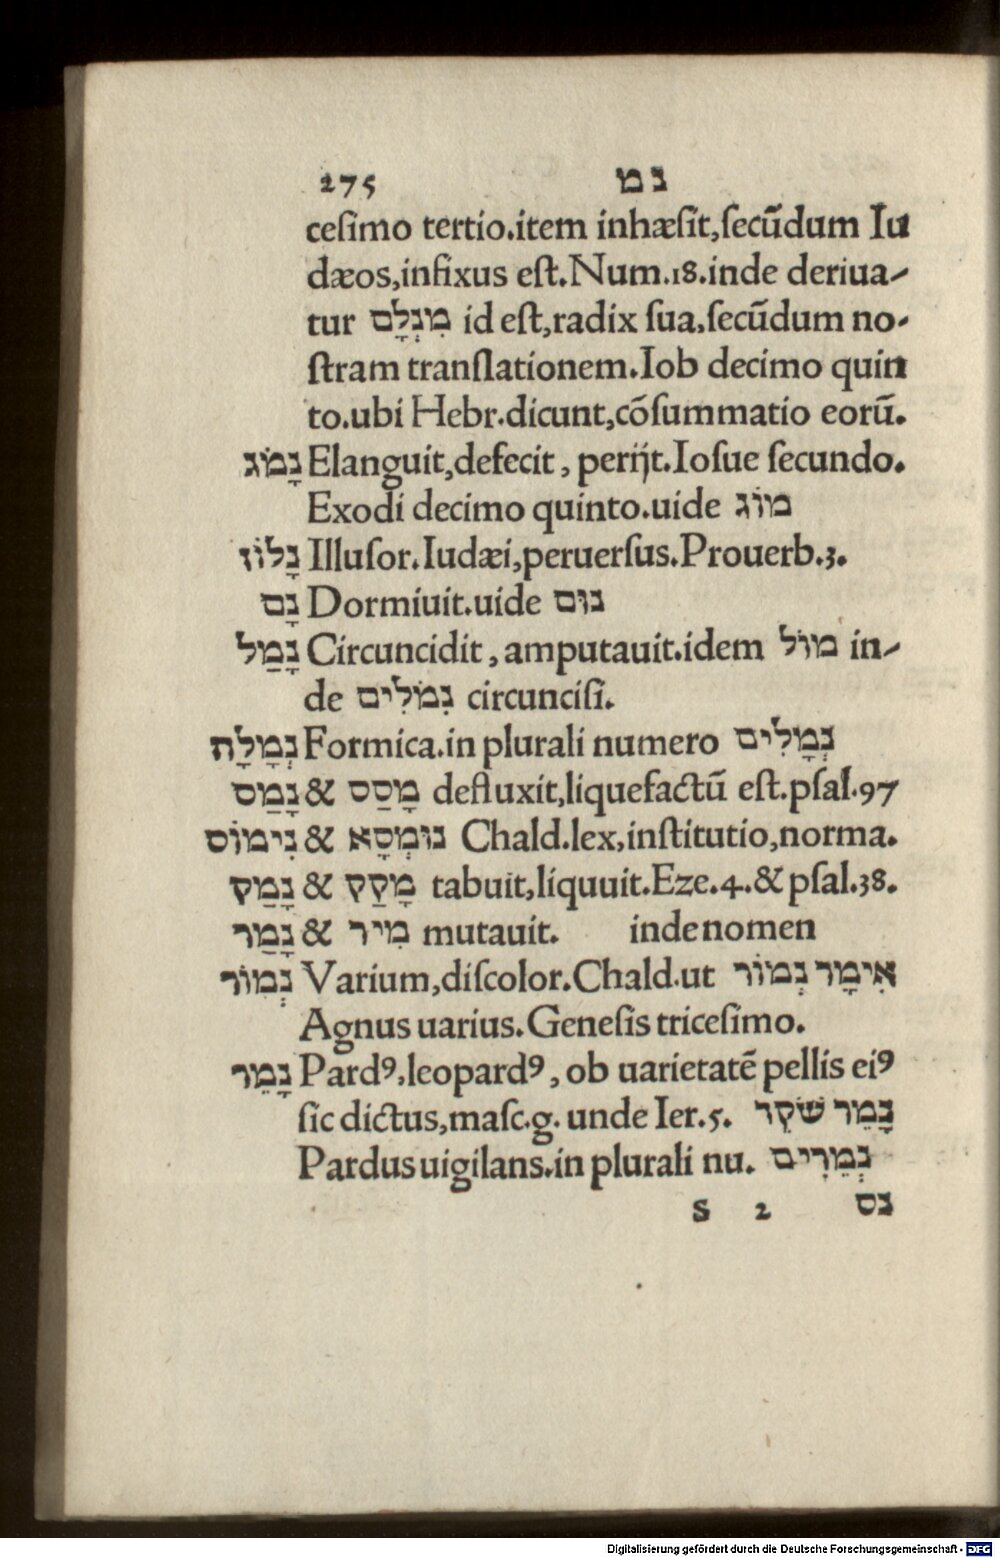 275 נמ
cesimo tertio.item inhæsit,secũdum Iu
dæos,infixus est.Num.18.inde deriua-
tur מִנְלָם id est,radix sua,secũdum no-
stram translationem.Iob decimo quin
to.ubi Hebr.dicunt,cõsummatio eorũ.
נָמֹג Elanguit,defecit, perijt.Iosue secundo.
Exodi decimo quinto.uide מוֹג
נָלוֹז Illusor.Iudæi,peruersus.Prouerb.3.
נָם Dormiuit.uide נוּם
נָמַל Circuncidit, amputauit.idem מוֹל in-
de נִמֹלִים circuncisi.
נְמָלַה Formica.in plurali numero נְמָלִים
נָמַס & מָסַס defluxit,liquefactũ est.psal.97
נִימוֹס & נוּמְסָא Chald.lex,institutio,norma.
נָמַק & מָקַק tabuit,liquuit.Eze.4.& psal.38.
נָמַר & מִיר mutauit. inde nomen
נְמוֹר Varium,discolor.Chald.ut אִימָר נְמוֹר
Agnus uarius.Genesis tricesimo.
נָמֵר Pardꝰ,leopardꝰ, ob uarietatẽ pellis eiꝰ
sic dictus,masc.g. unde Ier.5. נָמֵר שֹׁקֵר
Pardus uigilans.in plurali nu. נְמֵרִים
S 2 נס
Digitalisierung gefördert durch die Deutsche Forschungsgemeinschaft - DFG